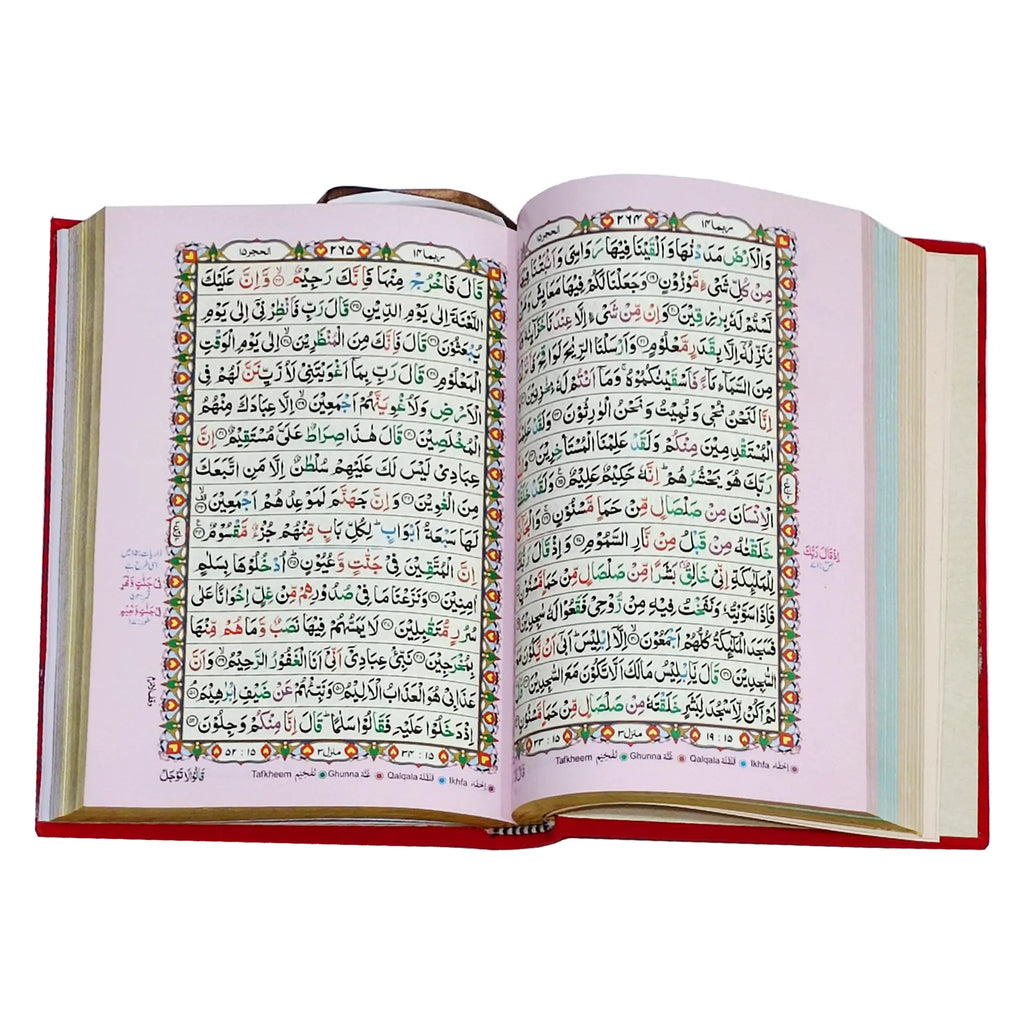 ربما ١٤ ٢٦٤ الحجر ١٥
وَالْاَرْضَ مَدَدْنٰهَا وَاَلْقَيْنَا فِيْهَا رَوَاسِىَ وَاَنْۢبَتْنَا فِيْهَا
مِنْ كُلِّ شَىْءٍ مَّوْزُوْنٍ ۝١٩ وَجَعَلْنَا لَكُمْ فِيْهَا مَعَايِشَ وَمَنْ
لَّسْتُمْ لَهٗ بِرٰزِقِيْنَ ۝٢٠ وَاِنْ مِّنْ شَىْءٍ اِلَّا عِنْدَنَا خَزَآئِنُهٗ وَمَا
نُنَزِّلُهٗۤ اِلَّا بِقَدَرٍ مَّعْلُوْمٍ ۝٢١ وَاَرْسَلْنَا الرِّيٰحَ لَوَاقِحَ فَاَنْزَلْنَا
مِنَ السَّمَآءِ مَآءً فَاَسْقَيْنٰكُمُوْهُ ۚ وَمَاۤ اَنْتُمْ لَهٗ بِخٰزِنِيْنَ ۝٢٢
وَاِنَّا لَنَحْنُ نُحْىٖ وَنُمِيْتُ وَنَحْنُ الْوٰرِثُوْنَ ۝٢٣ وَلَقَدْ عَلِمْنَا
الْمُسْتَقْدِمِيْنَ مِنْكُمْ وَلَقَدْ عَلِمْنَا الْمُسْتَاْخِرِيْنَ ۝٢٤ وَاِنَّ
رَبَّكَ هُوَ يَحْشُرُهُمْ ؕ اِنَّهٗ حَكِيْمٌ عَلِيْمٌ ۝٢٥ وَلَقَدْ خَلَقْنَا
الْاِنْسَانَ مِنْ صَلْصَالٍ مِّنْ حَمَاٍ مَّسْنُوْنٍ ۝٢٦ وَالْجَآنَّ
خَلَقْنٰهُ مِنْ قَبْلُ مِنْ نَّارِ السَّمُوْمِ ۝٢٧ وَاِذْ قَالَ رَبُّكَ
لِلْمَلٰٓئِكَةِ اِنِّىْ خَالِقٌۢ بَشَرًا مِّنْ صَلْصَالٍ مِّنْ حَمَاٍ مَّسْنُوْنٍ ۝٢٨
فَاِذَا سَوَّيْتُهٗ وَنَفَخْتُ فِيْهِ مِنْ رُّوْحِىْ فَقَعُوْا لَهٗ سٰجِدِيْنَ ۝٢٩
فَسَجَدَ الْمَلٰٓئِكَةُ كُلُّهُمْ اَجْمَعُوْنَ ۝٣٠ اِلَّاۤ اِبْلِيْسَ ؕ اَبٰىۤ اَنْ يَّكُوْنَ مَعَ
السّٰجِدِيْنَ ۝٣١ قَالَ يٰۤاِبْلِيْسُ مَا لَكَ اَلَّا تَكُوْنَ مَعَ السّٰجِدِيْنَ ۝٣٢
قَالَ لَمْ اَكُنْ لِّاَسْجُدَ لِبَشَرٍ خَلَقْتَهٗ مِنْ صَلْصَالٍ مِّنْ حَمَاٍ مَّسْنُوْنٍ ۝٣٣
١٥ : ١٩ منزل ٣ ١٥ : ٣٣
اِذْقَالَ رَبُّكَ
Tafkheem تفخيم Ghunna غُنَّة Qalqala قلقلة Ikhfa اخفاء
ربما ١٤ ٢٦٥ الحجر ١٥
قَالَ فَاخْرُجْ مِنْهَا فَاِنَّكَ رَجِيْمٌ ۝٣٤ وَّاِنَّ عَلَيْكَ
اللَّعْنَةَ اِلٰى يَوْمِ الدِّيْنِ ۝٣٥ قَالَ رَبِّ فَاَنْظِرْنِىْۤ اِلٰى يَوْمِ
يُبْعَثُوْنَ ۝٣٦ قَالَ فَاِنَّكَ مِنَ الْمُنْظَرِيْنَ ۝٣٧ اِلٰى يَوْمِ الْوَقْتِ
الْمَعْلُوْمِ ۝٣٨ قَالَ رَبِّ بِمَاۤ اَغْوَيْتَنِىْ لَاُزَيِّنَنَّ لَهُمْ فِى
الْاَرْضِ وَلَاُغْوِيَنَّهُمْ اَجْمَعِيْنَ ۝٣٩ اِلَّا عِبَادَكَ مِنْهُمُ
الْمُخْلَصِيْنَ ۝٤٠ قَالَ هٰذَا صِرَاطٌ عَلَىَّ مُسْتَقِيْمٌ ۝٤١ اِنَّ
عِبَادِىْ لَيْسَ لَكَ عَلَيْهِمْ سُلْطٰنٌ اِلَّا مَنِ اتَّبَعَكَ
مِنَ الْغٰوِيْنَ ۝٤٢ وَاِنَّ جَهَنَّمَ لَمَوْعِدُهُمْ اَجْمَعِيْنَ ۝٤٣
لَهَا سَبْعَةُ اَبْوَابٍ ؕ لِكُلِّ بَابٍ مِّنْهُمْ جُزْءٌ مَّقْسُوْمٌ ۝٤٤
اِنَّ الْمُتَّقِيْنَ فِىْ جَنّٰتٍ وَّعُيُوْنٍ ۝٤٥ اُدْخُلُوْهَا بِسَلٰمٍ
اٰمِنِيْنَ ۝٤٦ وَنَزَعْنَا مَا فِىْ صُدُوْرِهِمْ مِّنْ غِلٍّ اِخْوَانًا عَلٰى
سُرُرٍ مُّتَقٰبِلِيْنَ ۝٤٧ لَا يَمَسُّهُمْ فِيْهَا نَصَبٌ وَّمَا هُمْ مِّنْهَا
بِمُخْرَجِيْنَ ۝٤٨ نَبِّئْ عِبَادِىْۤ اَنِّىْۤ اَنَا الْغَفُوْرُ الرَّحِيْمُ ۝٤٩ وَاَنَّ
عَذَابِىْ هُوَ الْعَذَابُ الْاَلِيْمُ ۝٥٠ وَنَبِّئْهُمْ عَنْ ضَيْفِ اِبْرٰهِيْمَ ۝٥١
اِذْ دَخَلُوْا عَلَيْهِ فَقَالُوْا سَلٰمًا ؕ قَالَ اِنَّا مِنْكُمْ وَجِلُوْنَ ۝٥٢
١٥ : ٣٤ منزل ٣ ١٥ : ٥٢
فِىْ جَنّٰتٍ وَّنَهَرٍ
فِىْ جَنّٰتٍ وَّنَعِيْمٍ
وقف لازم
قَالُوْا لَا تَوْجَلْ
Tafkheem تفخيم Ghunna غُنَّة Qalqala قلقلة Ikhfa اخفاء